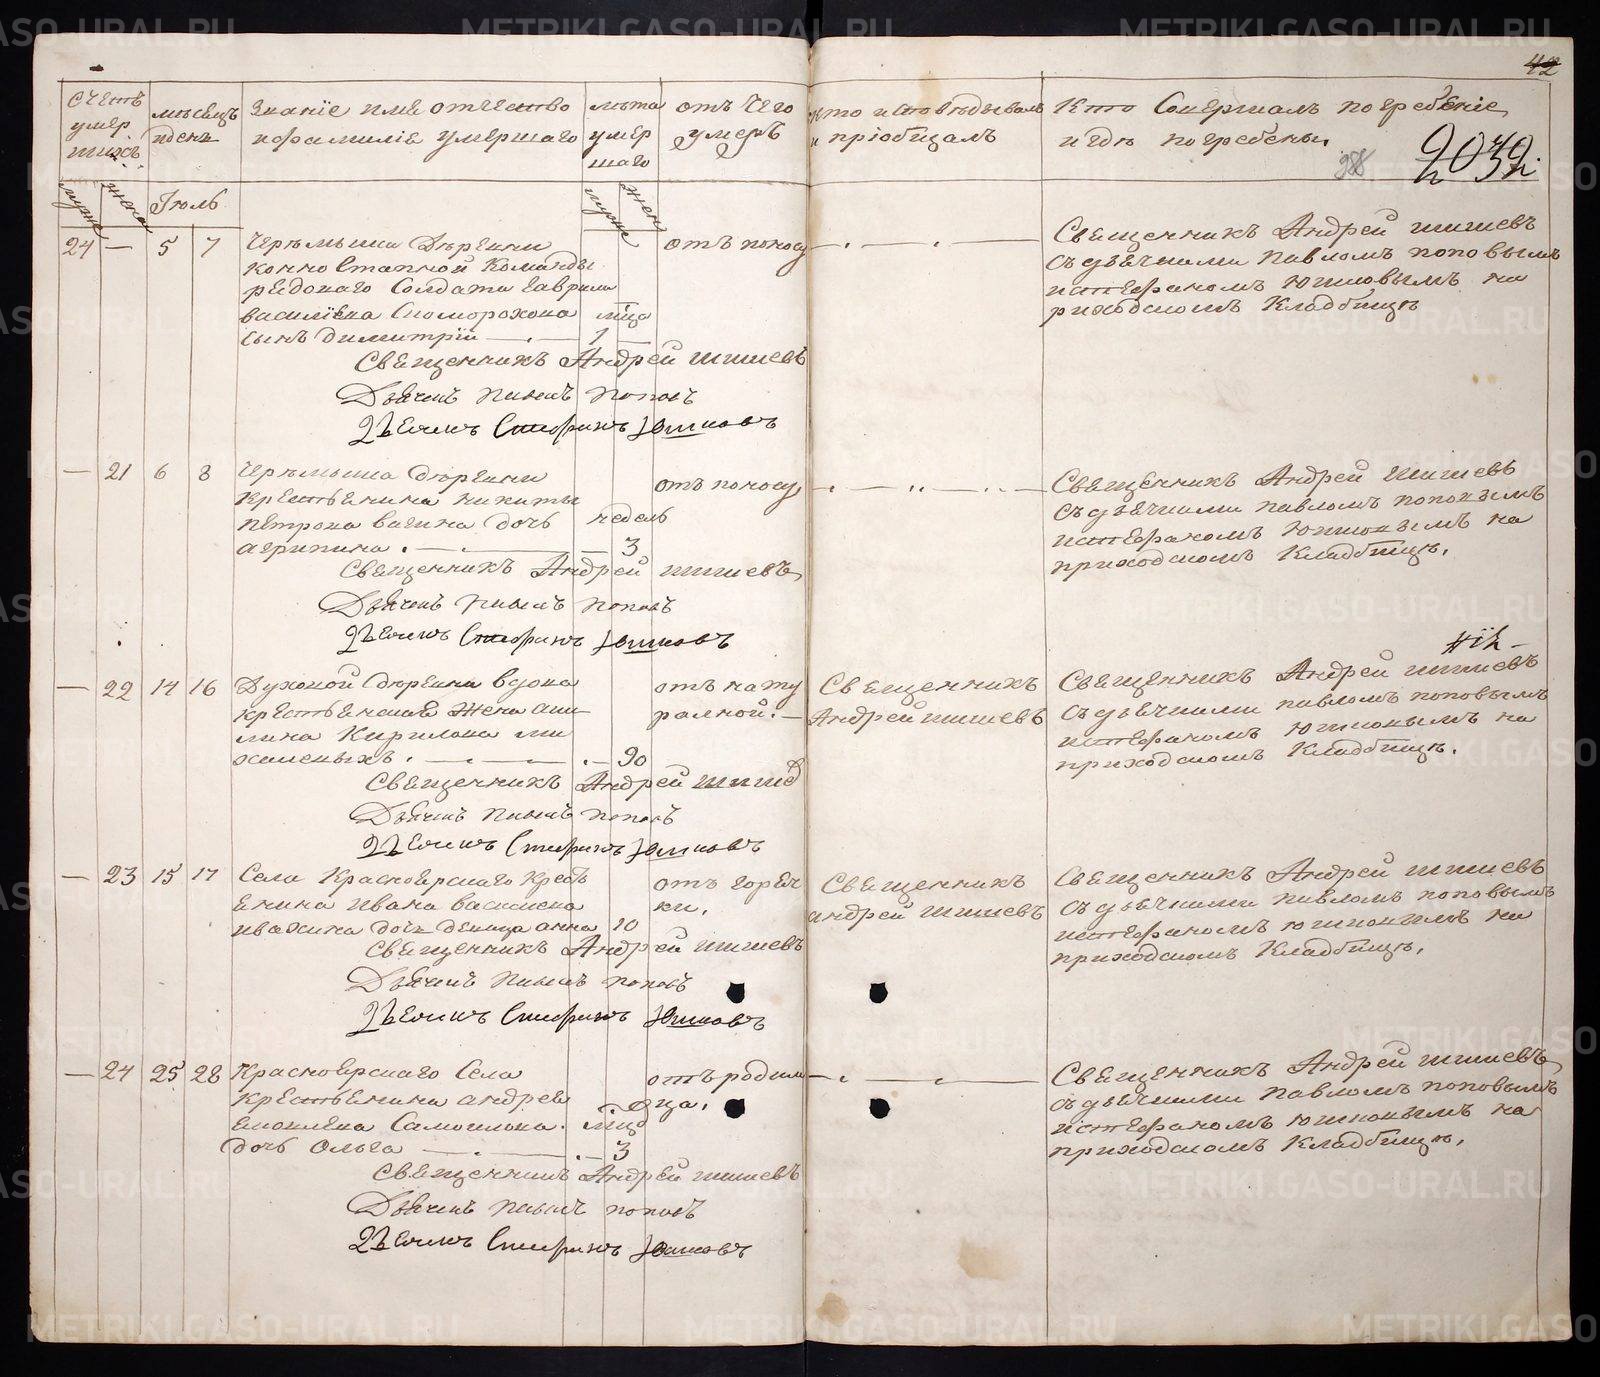 42
Счетъ умершихъ
мѣсецъ и день
Званіе имѣ отчество и фамиліе умершаго
лѣта умершаго
отъ чего умеръ
кто исповѣдывалъ и пріобщалъ
Кто Совершалъ погребеніе и гдѣ погребены
988
мужс
женс
Іюль
мужс
женс
24 — 5 7
Деревни
конно Команды
Солдата Гаврила
василіева Скоморохова мѣца
сынъ димитріи — 1 —
отъ поносу
Священникъ Андрей шишевъ
съ дьячками павломъ поповымъ
и стефаномъ юшковымъ на
приходскомъ Кладбищѣ
Священникъ Андрей шишевъ
Дьячекъ павелъ поповъ
Дьячекъ Стефанъ Юшковъ
— 21 6 8
деревни
крестьянина никиты
петрова вагина дочь недель
агрипина. — 3
отъ поносу
Священникъ Андрей шишевъ
съ дьячками павломъ поповымъ
и стефаномъ юшковымъ на
приходскомъ Кладбищѣ.
Священникъ Андрей шишевъ
Дьячекъ павелъ поповъ
Дьячекъ Стефанъ Юшковъ
— 22 14 16
деревни вдова
крестьянская жена аки
лина Кирилова
. — 90
отъ нату
ралной. —
Священникъ
Андрей шишевъ
Священникъ Андрей шишевъ
съ дьячками павломъ поповымъ
и стефаномъ юшковымъ на
приходскомъ Кладбищѣ.
Священникъ Андрей шишев
Дьячекъ павелъ поповъ
Дьячекъ Стефанъ Юшковъ
— 23 15 17
Села Красноярскаго Кресть
янина ивана василиева
ивакина дочь девица анна 10
отъ горяч
ки.
Священникъ
андрей шишевъ
Священникъ Андрей шишевъ
съ дьячками павломъ поповымъ
и стефаномъ юшковымъ на
приходскомъ Кладбищѣ.
Священникъ Андрей шишевъ
Дьячекъ павелъ поповъ
Дьячекъ Стефанъ Юшковъ
— 24 25 28
Красноярскаго Села
крестьянина андрея
Самоилова. мѣца
дочь Ольга — 3
отъ родим
ца.
Священникъ Андрей шишевъ
съ дьячками павломъ поповымъ
и стефаномъ юшковымъ на
приходскомъ Кладбищѣ.
Священникъ Андрей шишевъ
Дьячекъ павелъ поповъ
Дьячекъ Стефанъ Юшковъ
METRIKI.GASO-URAL.RU